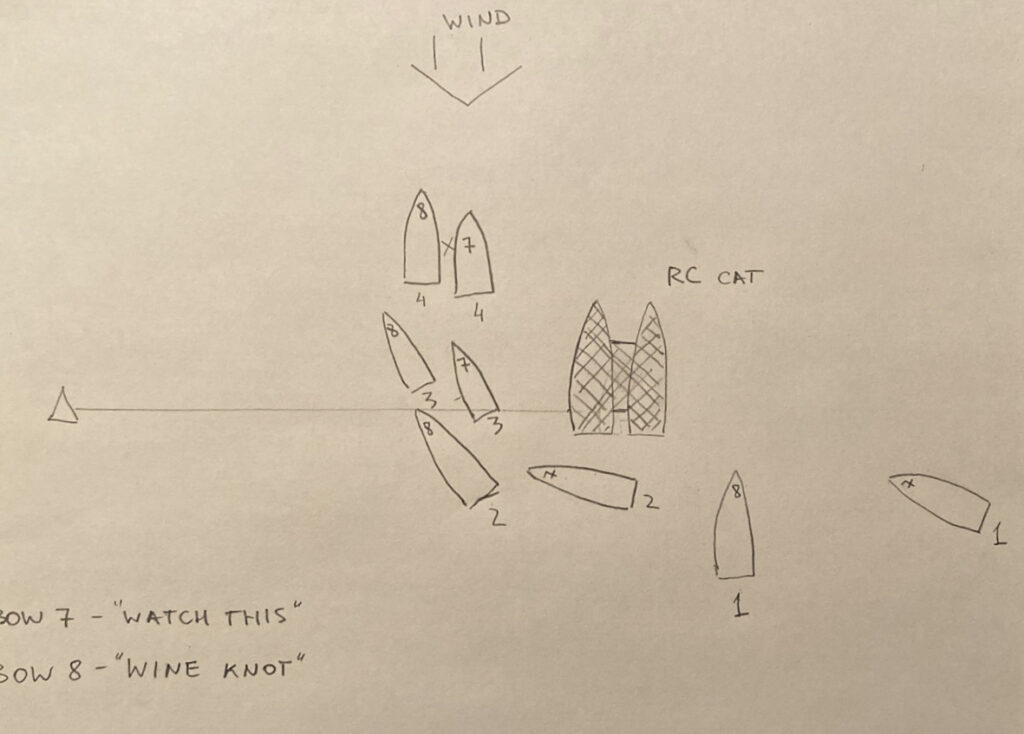 WIND
8
7
4
4
RC CAT
8
7
3
3
8
7
2
2
8
7
1
1
BOW 7 - "WATCH THIS"
BOW 8 - "WINE KNOT"